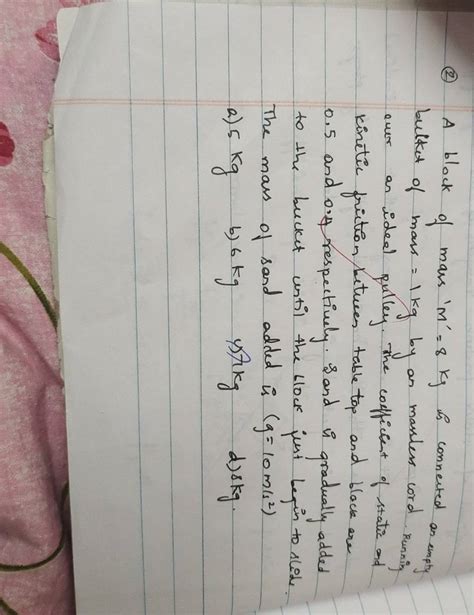 ② A block of mass 'M' = 8 Kg is connected an empty
bucket of mass = 1 kg by an massless cord running
over an ideal pulley. The coefficient of static and
kinetic friction between table top and block are
0.5 and 0.4 respectively. Sand is gradually added
to the bucket until the block just begin to slide.
The mass of sand added is (g = 10 m/s²)
a) 5 Kg b) 6 Kg c) 7 Kg d) 8 Kg.